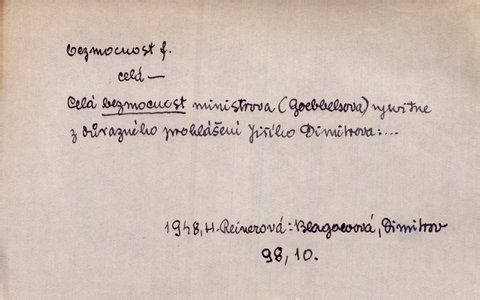 bezmocnost f.
celá —
Celá bezmocnost ministrova (Goebbelsova) vysvitne
z důrazného prohlášení Jiřího Dimitrova:...
1948, H. Reinerová: Blagoevová, Dimitrov
98, 10.